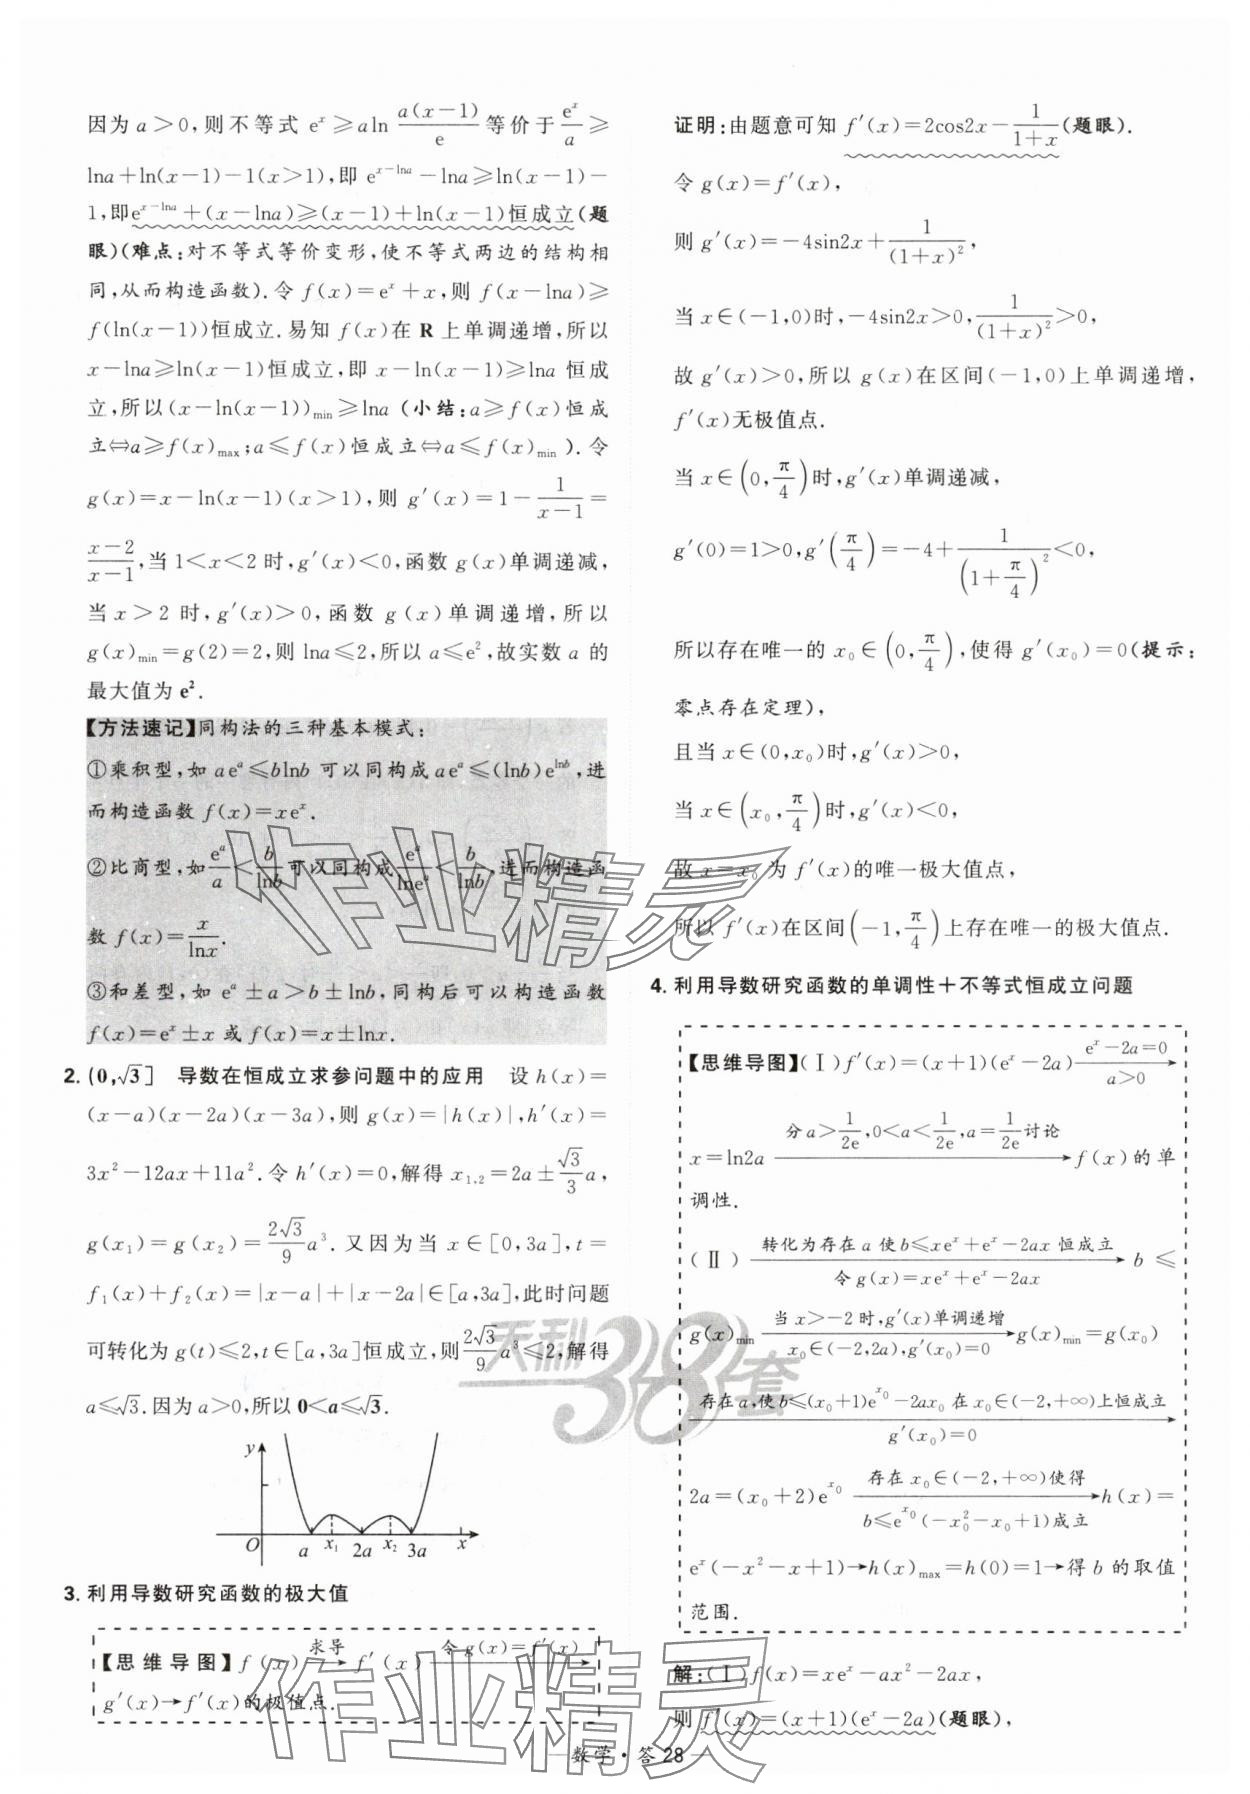 因为 a＞0，则不等式 e^x≥aln a(x−1)/e 等价于 e^x/a≥
lna+ln(x−1)−1(x＞1)，即 e^{x−lna}−lna≥ln(x−1)−
1，即e^{x−lna}+(x−lna)≥(x−1)+ln(x−1)恒成立(题
眼)(难点：对不等式等价变形，使不等式两边的结构相
同，从而构造函数)．令 f(x)=e^x+x，则 f(x−lna)≥
f(ln(x−1))恒成立．易知 f(x)在 R 上单调递增，所以
x−lna≥ln(x−1)恒成立，即 x−ln(x−1)≥lna 恒成
立，所以(x−ln(x−1))_min≥lna (小结：a≥f(x)恒成
立⇔a≥f(x)_max；a≤f(x)恒成立⇔a≤f(x)_min )．令
g(x)=x−ln(x−1)(x＞1)，则 g′(x)=1−1/(x−1)=
(x−2)/(x−1)，当 1＜x＜2 时，g′(x)＜0，函数 g(x)单调递减，
当 x＞2 时，g′(x)＞0，函数 g(x)单调递增，所以
g(x)_min=g(2)=2，则 lna≤2，所以 a≤e²，故实数 a 的
最大值为 e²．
【方法速记】同构法的三种基本模式：
①乘积型，如 ae^a≤blnb 可以同构成 ae^a≤(lnb)e^{lnb}，进
而构造函数 f(x)=xe^x．
②比商型，如 e^a/a＜b/lnb 可以同构成 e^a/lne^a＜b/lnb，进而构造函
数 f(x)=x/lnx．
③和差型，如 e^a±a＞b±lnb，同构后可以构造函数
f(x)=e^x±x 或 f(x)=x±lnx．
2. (0,√3] 导数在恒成立求参问题中的应用 设 h(x)=
(x−a)(x−2a)(x−3a)，则 g(x)=|h(x)|，h′(x)=
3x²−12ax+11a²．令 h′(x)=0，解得 x_{1,2}=2a±(√3/3)a，
g(x₁)=g(x₂)=(2√3/9)a³．又因为当 x∈[0,3a]，t=
f₁(x)+f₂(x)=|x−a|+|x−2a|∈[a,3a]，此时问题
可转化为 g(t)≤2，t∈[a,3a]恒成立，则(2√3/9)a³≤2，解得
a≤√3．因为 a＞0，所以 0＜a≤√3．
y
O a x₁ 2a x₂ 3a x
3. 利用导数研究函数的极大值
【思维导图】f(x) 求导→ f′(x) 令g(x)=f′(x)→
g′(x)→f′(x)的极值点．
证明：由题意可知 f′(x)=2cos2x−1/(1+x)(题眼)．
令 g(x)=f′(x)，
则 g′(x)=−4sin2x+1/(1+x)²，
当 x∈(−1,0)时，−4sin2x＞0，1/(1+x)²＞0，
故 g′(x)＞0，所以 g(x)在区间(−1,0)上单调递增，
f′(x)无极值点．
当 x∈(0,π/4)时，g′(x)单调递减，
g′(0)=1＞0，g′(π/4)=−4+1/(1+π/4)²＜0，
所以存在唯一的 x₀∈(0,π/4)，使得 g′(x₀)=0(提示：
零点存在定理)，
且当 x∈(0,x₀)时，g′(x)＞0，
当 x∈(x₀,π/4)时，g′(x)＜0，
故 x=x₀ 为 f′(x)的唯一极大值点，
所以 f′(x)在区间(−1,π/4)上存在唯一的极大值点．
4. 利用导数研究函数的单调性+不等式恒成立问题
【思维导图】(Ⅰ)f′(x)=(x+1)(e^x−2a) e^x−2a=0→ a＞0
x=ln2a 分 a＞1/2e，0＜a＜1/2e，a=1/2e讨论→ f(x)的单
调性．
(Ⅱ) 转化为存在 a 使 b≤xe^x+e^x−2ax 恒成立→ 令 g(x)=xe^x+e^x−2ax b≤
g(x)_min 当 x＞−2 时，g′(x)单调递增→ x₀∈(−2,2a)，g′(x₀)=0 g(x)_min=g(x₀)
存在 a，使 b≤(x₀+1)e^{x₀}−2ax₀ 在 x∈(−2,+∞)上恒成立→ g′(x₀)=0
2a=(x₀+2)e^{x₀} 存在 x₀∈(−2,+∞)使得→ b≤e^{x₀}(−x₀²−x₀+1)成立 h(x)=
e^x(−x²−x+1)→h(x)_max=h(0)=1→得 b 的取值
范围．
解：(Ⅰ)f(x)=xe^x−ax²−2ax，
则 f′(x)=(x+1)(e^x−2a)(题眼)，
数学·答 28
作业精灵
天利38套
作业精灵